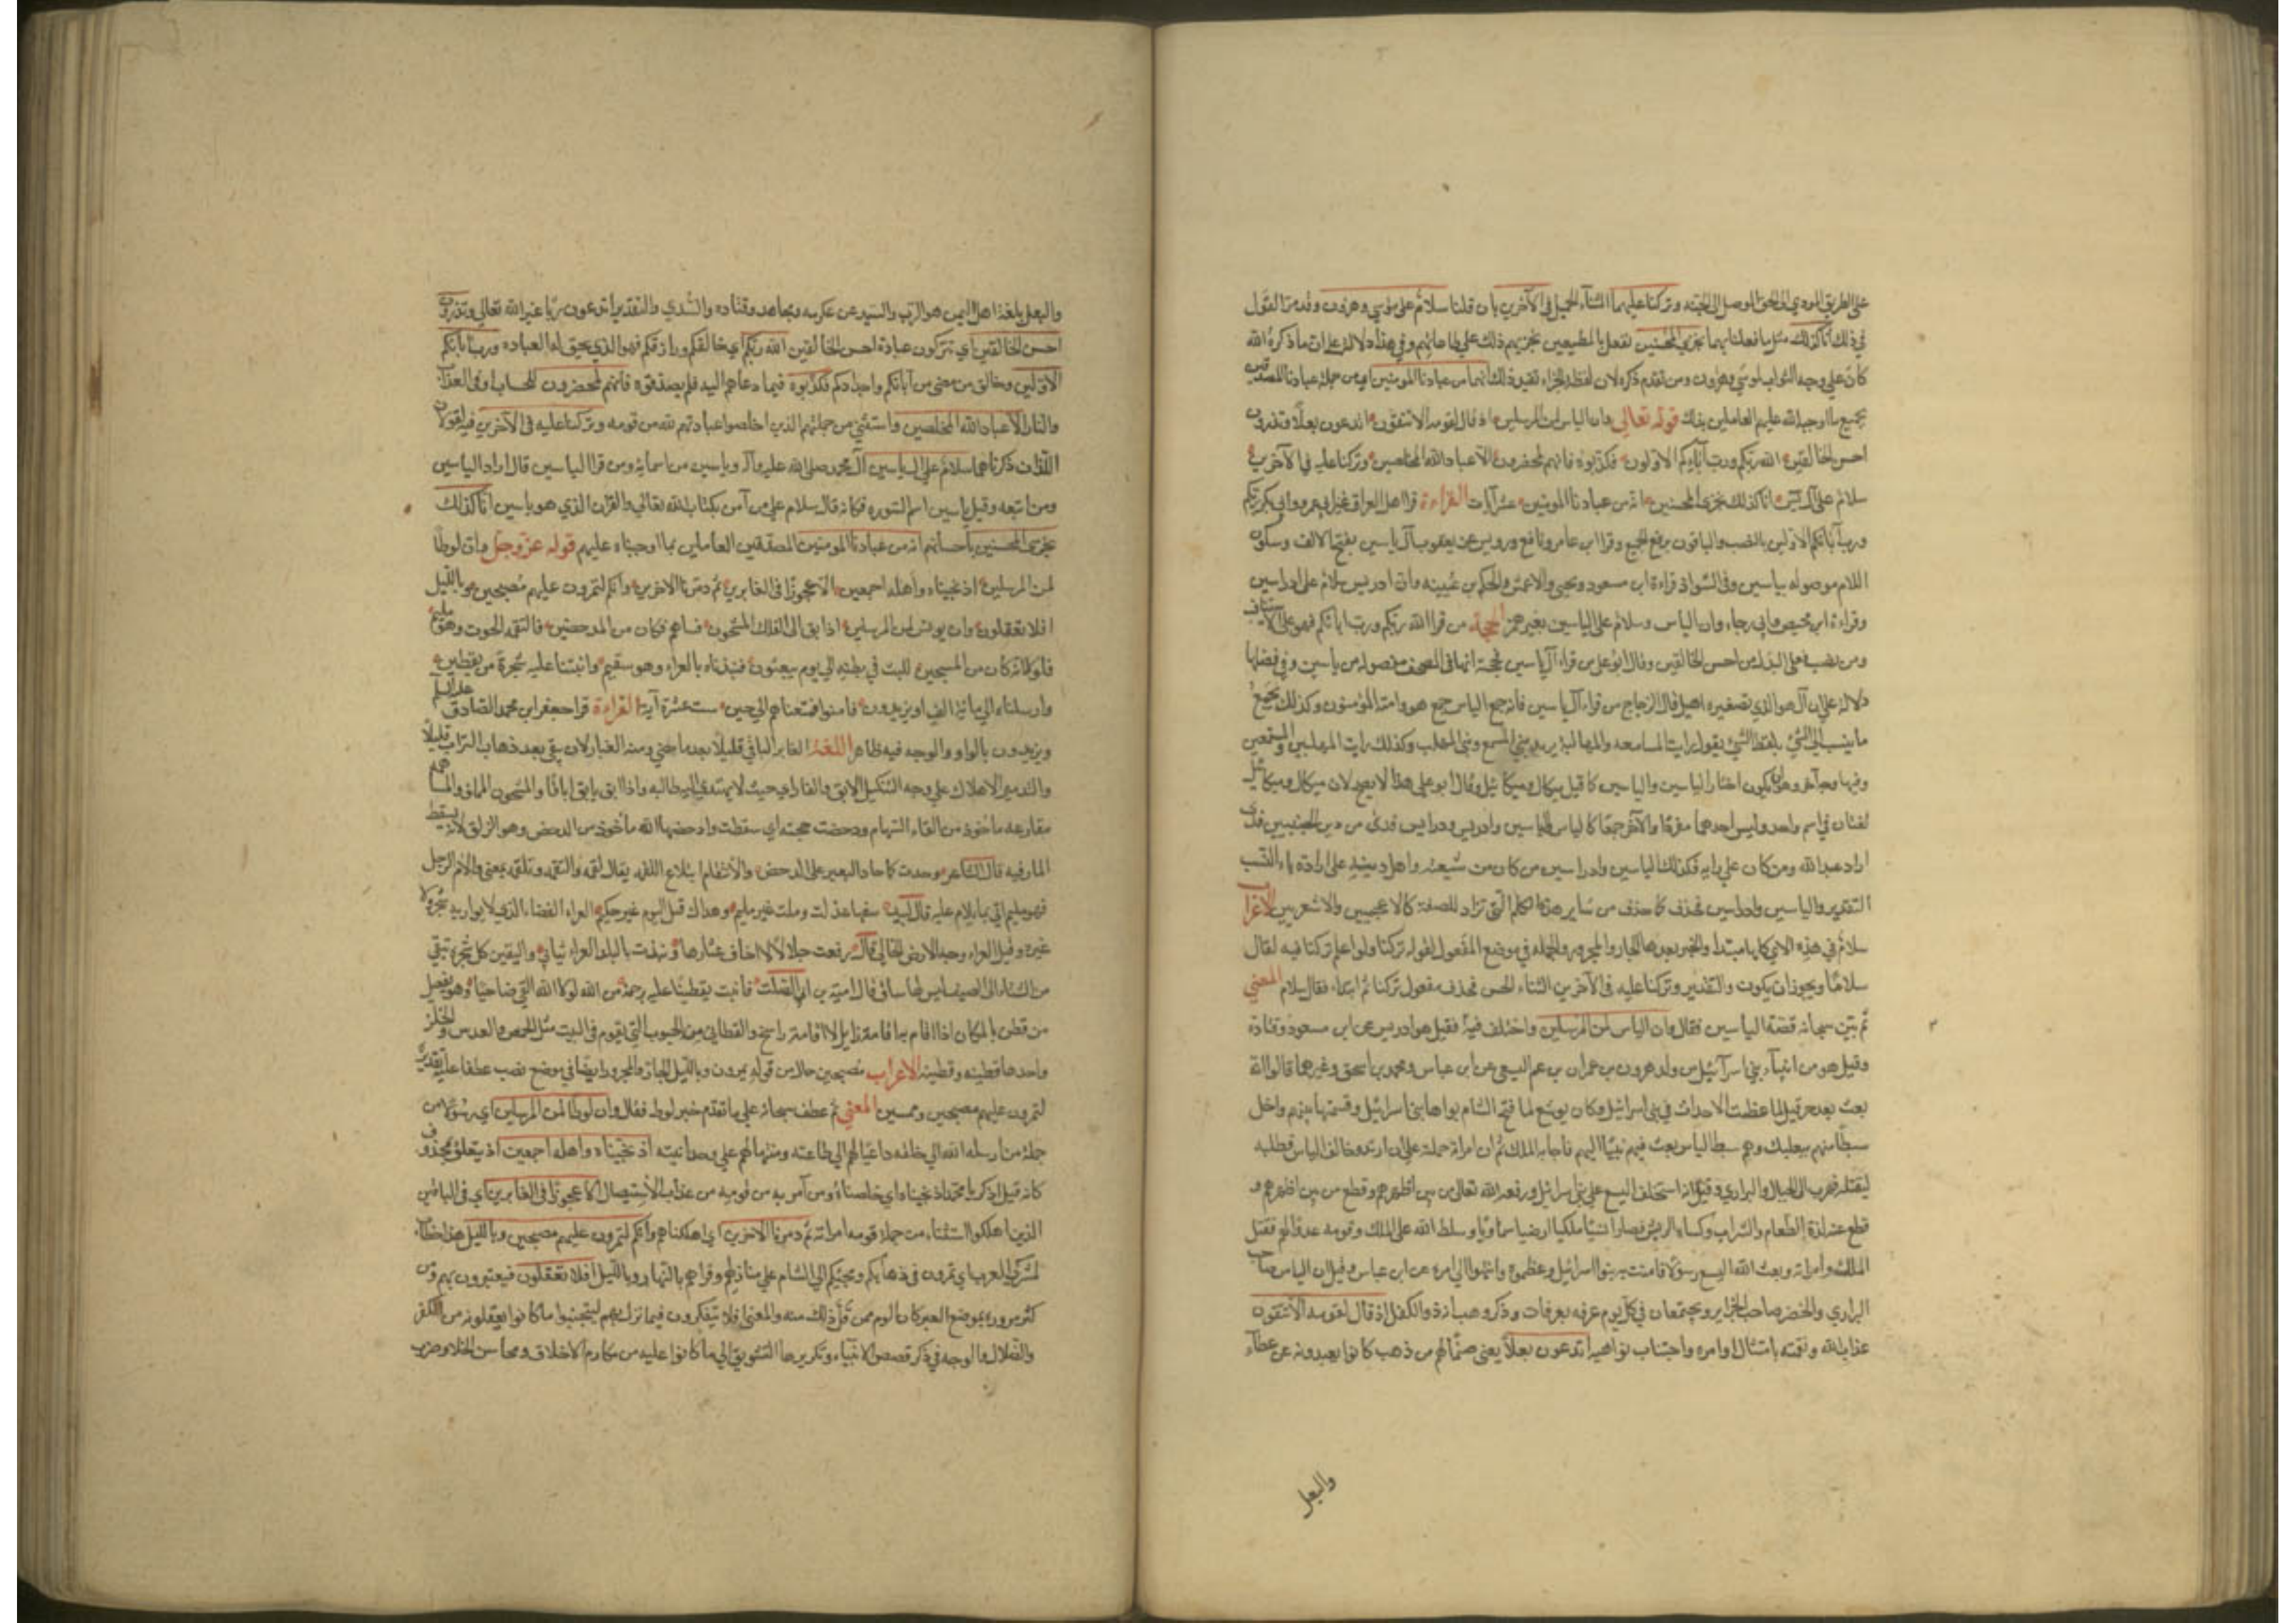 على الطريق المودي الى الحق الموصل الى الجنة وتركنا عليهما الثناء الجميل في الآخرين بان قلنا سلام على موسى وهرون وقد مر القول
في ذلك انا كذلك مثل ما فعلنا بهما نجزي المحسنين نفعل بالمطيعين نجزيهم ذلك على طاعاتهم وفي هذا دلالة على ان ما ذكره الله
كان على وجه الثواب لموسى وهرون ومن تقدم ذكره لان لفظ الجزاء تفيد ذلك انهما من عبادنا المومنين اي من جملة عبادنا المصدقين
بجميع ما اوجبه الله عليهم العاملين بذلك قوله تعالى وان الياس لمن المرسلين اذ قال لقومه الا تتقون اتدعون بعلا وتذرون
احسن الخالقين الله ربكم ورب آبائكم الاولين فكذبوه فانهم لمحضرون الا عباد الله المخلصين وتركنا عليه في الآخرين
سلام على آل يس انا كذلك نجزي المحسنين انه من عبادنا المومنين عشر آيات القراءة قرا اهل العراق غير ابي عمرو وابي بكر الله ربكم
ورب آبائكم الاولين بالنصب والباقون برفع الجميع وقرا ابن عامر ونافع ورويس عن يعقوب آل ياسين بفتح الالف وسكون
اللام موصوله بياسين وفي الشواذ قراءة ابن مسعود ويحيى والاعمش والحكم بن عيينه وان ادريس سلام على ادراسين
وقراءة ابن محيصن وابي رجاء وان الياس وسلام على الياسين بغير همز الحجة من قرا الله ربكم ورب ابائكم فهو على الاستيناف
ومن نصب فعلى البدل من احسن الخالقين وقال ابو علي من قراء آل ياسين فحجته انها في المصحف مفصوله من ياسين وفي فصلها
دلالة على ان آل هو الذي تصغيره اهيل قال الزجاج من قراء الياسين فانه جمع الياس جمع هو وامته المؤمنون وكذلك يجمع
ما ينسب الى الشي بلفظ الشي يقول رايت المسامعه والمهالبة يريد بني المسمع وبني المهلب وكذلك رايت المهلبين والمسمعين
وفيها وجه آخر وهو ان يكون لغتان الياسين والياس كما قيل ميكال وميكائيل وقال ابو علي هذا لا يصح لان ميكال وميكائيل
لغتان في اسم واحد وليس احدهما مفردا والآخر جمعا كالياس والياسين وادريس ودراسين قدني من نصر الخبيبين قدي
اراد عبد الله ومن كان على رايه فكذلك الياسين وادراسين من كان من شيعته واهل دينه على ارادة ياء النسب
التقدير والياسين وادراسين فحذف كما حذف من سائر هذه الكلم التي تراد للصفة كالاعجمين والاشعرين الاعراب
سلام في هذه الآي كلها مبتدا والخبر بعدها الجار والمجرور والجمله في موضع المفعول لقوله تركنا ولو اعمل تركنا فيه لقال
سلاما ويجوز ان يكون والتقدير وتركنا عليه في الآخرين الثناء الحسن فحذف مفعول تركنا ثم ابتدا فقال سلام المعنى
ثم بين سبحانه قصة الياسين فقال وان الياس لمن المرسلين واختلف فيه فقيل هو ادريس عن ابن مسعود وقتادة
وقيل هو من انبياء بني اسرائيل من ولد هرون بن عمران بن عم اليسع عن ابن عباس ومحمد بن اسحق وغيرهما قالوا انه
بعث بعد حزقيل لما عظمت الاحداث في بني اسرائيل وكان يوشع لما فتح الشام بواها بني اسرائيل وقسمها بينهم واحل
سبطا منهم ببعلبك وهم سبط الياس بعث فيهم نبيا اليهم فاجابه الملك ثم ان امراته حملته على ان ارتد وخالف الياس فطلبه
ليقتله فهرب الى الجبال والبراري وقيل انه استخلف اليسع على بني اسرائيل ورفعه الله تعالى من بين اظهرهم وقطع من بين اظهرهم و
قطع عنه لذة الطعام والشراب وكساه الريش فصار انسيا ملكيا ارضيا سماويا وسلط الله على الملك وقومه عدوا لهم فقتل
الملك وامراته وبعث الله اليسع رسولا فامنت به بنوا اسرائيل وعظموه وانتهوا الى امره عن ابن عباس وقيل ان الياس صاحب
البراري والخضر صاحب الجزاير ويجتمعان في كل يوم عرفه بعرفات وذكر وهب انه ذو الكفل اذ قال لقومه الا تتقون
عذاب الله ونقمته بامتثال اوامره واجتناب نواهيه اتدعون بعلا يعني صنما لهم من ذهب كانوا يعبدونه عن عطاء
والبعل
والبعل بلغة اهل اليمن هو الرب والسيد عن عكرمه ومجاهد وقتاده والسدي والتقدير اتدعون ربا غير الله تعالى وتذرون
احسن الخالقين اي تتركون عبادة احسن الخالقين الله ربكم اي خالقكم ورازقكم فهو الذي يحق له العباده ورب آبائكم
الاولين وخالق من مضى من آبائكم واجدادكم فكذبوه فيما دعاهم اليه فلم يصدقوه فانهم لمحضرون للحساب او في العذاب
والنار الا عباد الله المخلصين واستثنى من جملتهم الذين اخلصوا عبادتهم لله من قومه وتركنا عليه في الآخرين فيه القولان
اللذان ذكرناهما سلام على الياسين آل محمد صلى الله عليه وآله وياسين من اسمائه ومن قرا الياسين قال اراد الياسين
ومن اتبعه وقيل ياسين اسم السوره فكانه قال سلام على من آمن بكتاب الله تعالى والقران الذي هو ياسين انا كذلك
نجزي المحسنين باحسانهم انه من عبادنا المومنين المصدقين العاملين بما اوجبناه عليهم قوله عز وجل وان لوطا
لمن المرسلين اذ نجيناه واهله اجمعين الا عجوزا في الغابرين ثم دمرنا الآخرين وانكم لتمرون عليهم مصبحين وبالليل
افلا تعقلون وان يونس لمن المرسلين اذ ابق الى الفلك المشحون فساهم فكان من المدحضين فالتقمه الحوت وهو مليم
فلولا انه كان من المسبحين للبث في بطنه الى يوم يبعثون فنبذناه بالعراء وهو سقيم وانبتنا عليه شجرة من يقطين
وارسلناه الى مائة الف او يزيدون فامنوا فمتعناهم الى حين ست عشرة آية القراءة قرا جعفر ابن محمد الصادق عليه السلم
ويزيدون بالواو والوجه فيه ظاهر اللغة الغابر الباقي قليلا بعد ما مضى ومنه الغبار لانه يبقى بعد ذهاب التراب قليلا
والتدمير الاهلاك على وجه التنكيل الابق الفار الى حيث لا يهتدي اليه طالبه واذا ابق يابق اباقا والمشحون المملو والمساهمه
مقارعه ماخوذ من القاء السهام ودحضت حجته اي سقطت وادحضها الله ماخوذ من الدحض وهو الزلق لانه يسقط
المار فيه قال الشاعر وحدت كما حاد البعير عن الدحض والالتقام ابتلاع اللقمة يقال لقمه والتقمه وتلقمه بمعنى والام الرجل
فهو مليم اتى بما يلام عليه قال لبيد سفها عذلت وملت غير مليم وهداك قبل اليوم غير حكيم العراء الفضاء الذي لا يواريه شجر ولا
غيره وقيل العراء وجه الارض الخالي قال رفعت رجلا لا اخاف عثارها ونبذت بالبلد العراء ثيابي واليقطين كل شجرة تبقى
من الشتاء الى الصيف ليس لها ساق قال امية بن ابي الصلت فانبت يقطينا عليه برحمة من الله لولا الله القي ضاحيا وهو يفعيل
من قطن بالمكان اذا اقام به اقامة زايل لا اقامة راسخ والقطاني من الحبوب التي يقوم في البيت مثل الحمص والعدس والخلر
واحدها قطينه وقطينه الاعراب مصبحين حال من قوله تمرون وبالليل الجار والمجرور ايضا في موضع نصب عطفا عليه تقديره
لتمرون عليهم مصبحين وممسين المعنى ثم عطف سبحانه على ما تقدم خبر لوط فقال وان لوطا لمن المرسلين اي رسولا من
جملة من ارسله الله الى خلقه داعيا لهم الى طاعته ومنبها لهم على وحدانيته اذ نجيناه واهله اجمعين اذ يتعلق بمحذوف
كانه قيل اذكر يا محمد اذ نجيناه اي خلصناه ومن آمن به من قومه من عذاب الاستيصال الا عجوزا في الغابرين اي في الباقين
الذين اهلكوا استثناء من جملة قومه امراته ثم دمرنا الاخرين اي اهلكناهم وانكم لتمرون عليهم مصبحين وبالليل هذا خطاب
لمشركي العرب اي تمرون في ذهابكم ومجيئكم الى الشام على منازلهم وقراهم بالنهار وبالليل افلا تعقلون فيعتبرون بهم ومن
كثر مروره بموضع العبر كان الوم ممن قل ذلك منه والمعنى افلا يتفكرون فيما نزل بهم ليتجنبوا ما كانوا يفعلونه من الكفر
والضلال والوجه في ذكر قصص الانبياء وتكريرها التشويق الى ما كانوا عليه من مكارم الاخلاق ومحاسن الخلال وصرف